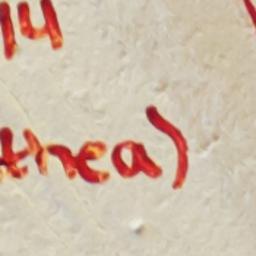 14
thea)